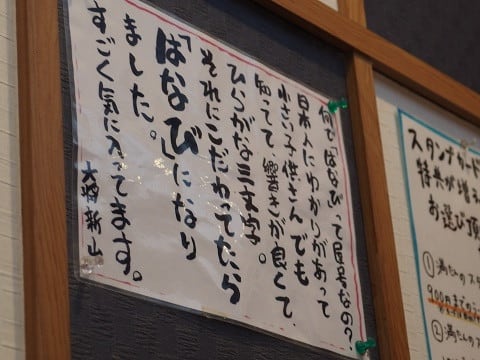 何で「はなび」って屋号なの?
日本人にわかりがあって
小さい子供さんでも
知ってて、響きが良くて、
ひらがな三文字。
それにこだわってたら
「はなび」になり
ました。
すごく気に入ってます。
大将 新山
スタンプカード
特典が増え
お選び頂
①満たんのスタ
900円までの
②満たん